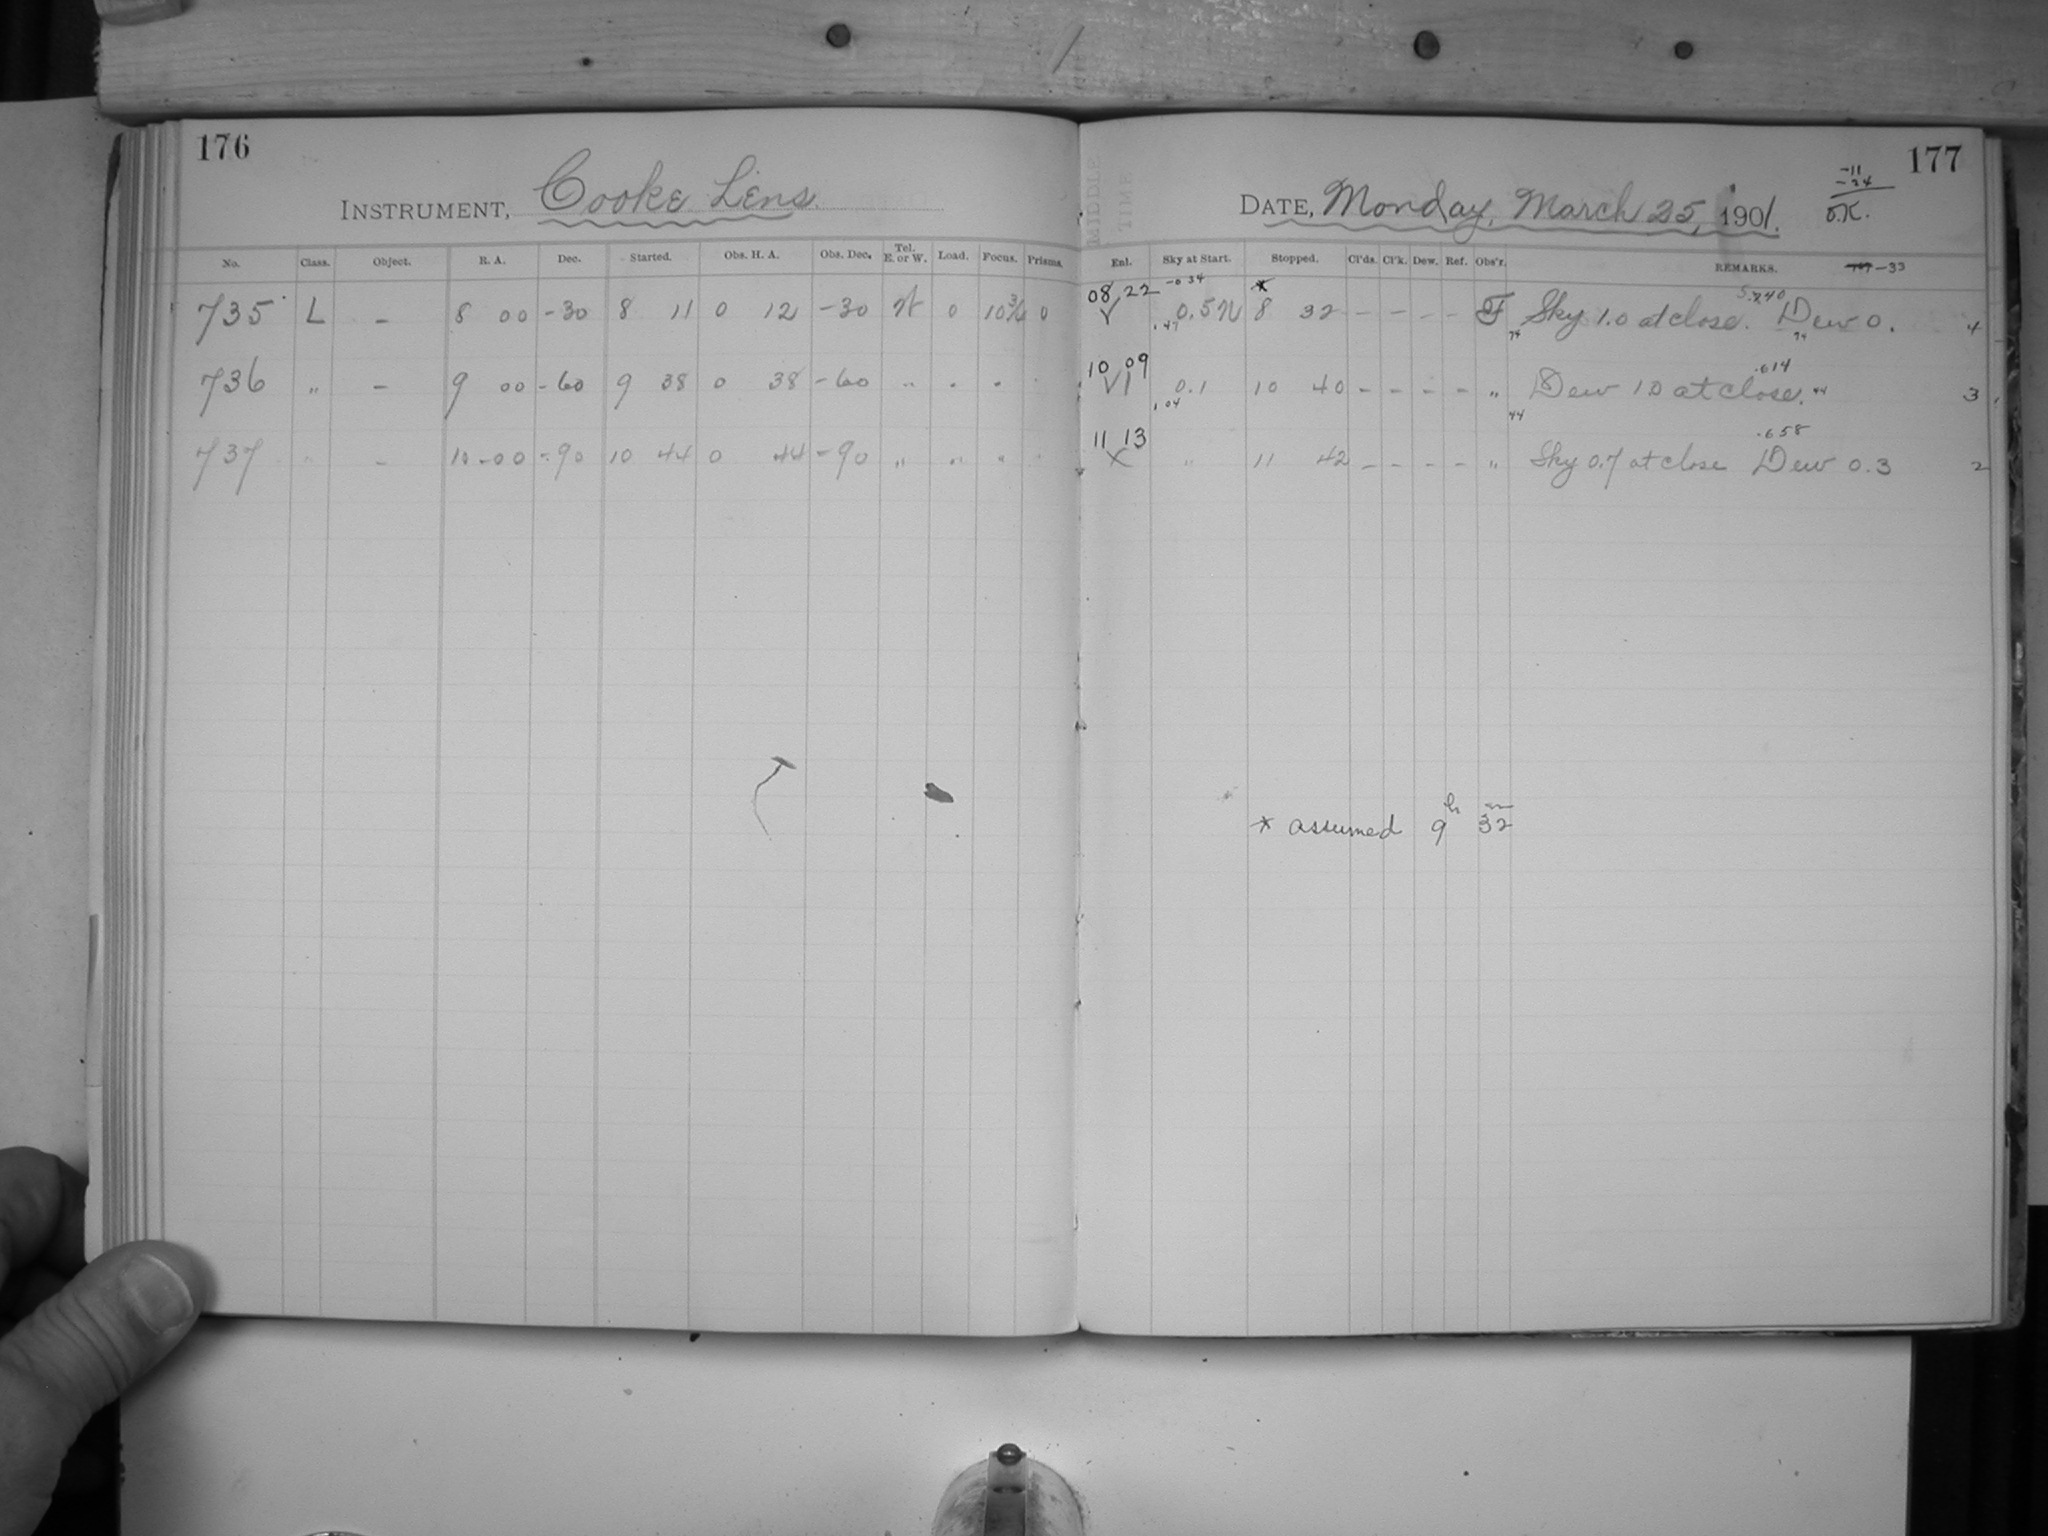 176
INSTRUMENT, Cooke Lens.
No. Class. Object. R. A. Dec. Started. Obs. H. A. Obs. Dec. Tel. E. or W. Load. Focus. Prisms.
735 L - 8 00 -30 8 11 0 12 -30 W 0 10 3/4 0
736 " - 9 00 -60 9 38 0 38 -60 " " "
737 " - 10 00 -90 10 44 0 44 -90 " " " "
177
-11
-24
O.K.
DATE, Monday, March 25, 1901.
MIDDLE
TIME
Enl. Sky at Start. Stopped. Cl'ds. Cl'k. Dew. Ref. Obs'r. REMARKS. -33
08 22 -034 *
√ .47 0.5 N 8 32 - - - - F 74 Sky 1.0 at close. Dew 0. 74 4
10 09 .614
√ 1.04 0.1 10 40 - - - - " 44 Dew 1.0 at close. 44 3
11 13 .658
X " 11 42 - - - - " Sky 0.7 at close Dew 0.3 2
* assumed 9h 32m